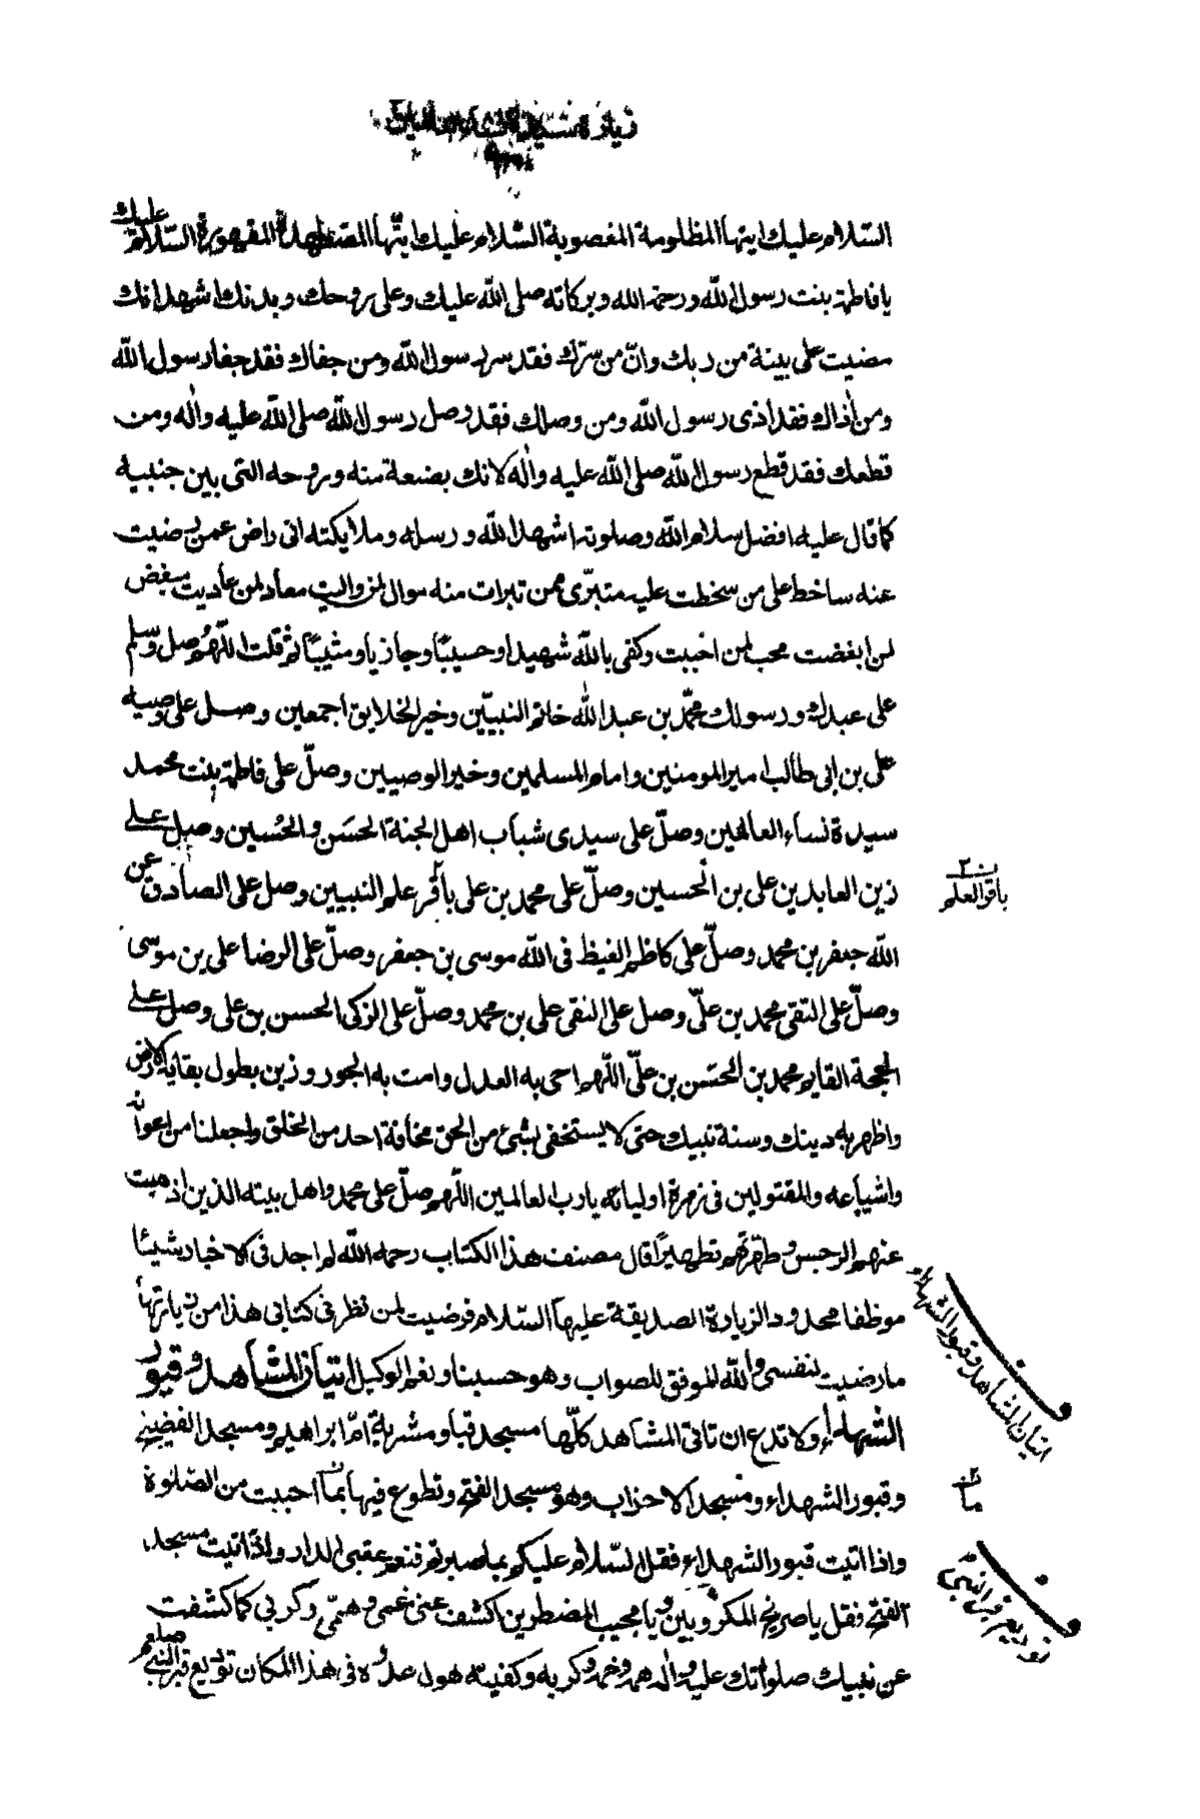 زيارة سيدة نساء العالمين
السّلام عليك ايتها المظلومة المغصوبة السّلام عليك ايّتها المضطهدة المقهورة السّلام عليك
يا فاطمة بنت رسول اللّه ورحمة الله وبركاته صلى اللّه عليك وعلى روحك وبدنك اشهد انك
مضيت على بينة من ربك وانّ من سرّك فقد سر رسول اللّه ومن جفاك فقد جفا رسول اللّه
ومن أذاك فقد اذى رسول اللّه ومن وصلك فقد وصل رسول اللّه صلى اللّه عليه واله ومن
قطعك فقد قطع رسول اللّه صلى اللّه عليه واله لانك بضعة منه وروحه التى بين جنبيه
كما قال عليه افضل سلام اللّه وصلوته اشهد اللّه ورسله وملايكته انى راض عمن رضيت
عنه ساخط على من سخطت عليه متبرّى ممن تبرات منه موال لمن واليت معاد لمن عاديت مبغض
لمن ابغضت محب لمن احببت وكفى باللّه شهيدا وحسيبًا وجازيا ومثيبًا ثم قلت اللّهم صل وسلم
على عبدك ورسولك محمّد بن عبد اللّه خاتم النبيّين وخير الخلايق اجمعين وصل على وصيه
على بن ابى طالب امير المومنين وامام المسلمين وخير الوصيين وصلّ على فاطمة بنت محمد
سيدة نساء العالمين وصلّ على سيدى شباب اهل الجنة الحسَن والحُسين وصل على
زين العابدين على بن الحسين وصلّ على محمد بن على باقر علم النبيين وصل على الصادق عن
اللّه جعفر بن محمد وصلّ على كاظم الغيظ فى اللّه موسى بن جعفر وصلّ على الرضا على بن موسى
وصلّ على التقى محمد بن علىّ وصل على النقى على بن محمد وصلّ على الزكى الحسن بن على وصل على
الحجة القايم محمد بن الحسَن بن علىّ اللّهم احى به العدل وامت به الجور وزين بطول بقايه الارض
واظهر به دينك وسنة نبيك حتى لا يستخفى بشئ من الحق مخافة احد من الخلق واجعلنا من اعوانه
واشياعه والمقتولين فى زمرة اوليائه يا رب العالمين اللّهم صلّ على محمد واهل بيته الذين اذهبت
عنهم الرجس وطهّرتهم تطهيرًا قال مصنف هذا الكتاب رحمه اللّه لم اجد فى الاخبار شيئا
موظفا محدودا لزيارة الصديقة عليها السّلام فرضيت لمن نظر فى كتابى هذا من زيارتها
ما رضيت لنفسى واللّه الموفق للصواب وهو حسبنا ونعم الوكيل اتيان المشاهد وقبور
الشهداء ولا تدع ان تاتى المشاهد كلّها مسجد قبا ومشربة امّ ابراهيم ومسجد الفضيخ
وقبور الشهداء ومسجد الاحزاب وهو مسجد الفتح وتطوع فيها بما احببت من الصّلوة
واذا اتيت قبور الشهداء فقل السّلام عليكم بما صبرتم فنعم عقبى الدار واذا اتيت مسجد
الفتح فقل يا صريخ المكروبين ويا مجيب المضطرين اكشف عنى غمى وهمّى وكربى كما كشفت
عن نبيك صلواتك عليه واله همه وغمه وكربه وكفيته هول عدوّه فى هذا المكان توديع قبر النبى صلعم
باقر العلم
اتيان المشاهد وقبور الشهداء
ما
توديع قبر النبى